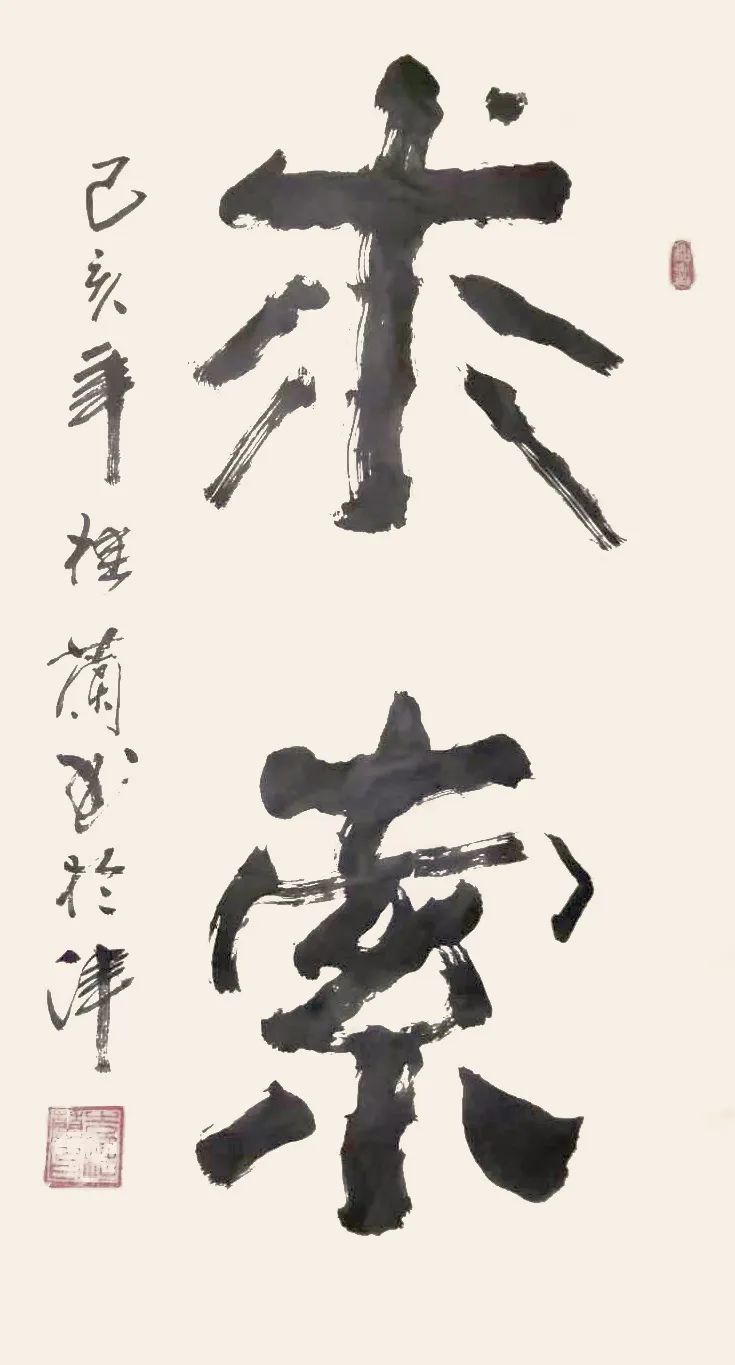 求索
己亥年桂蘭書於津